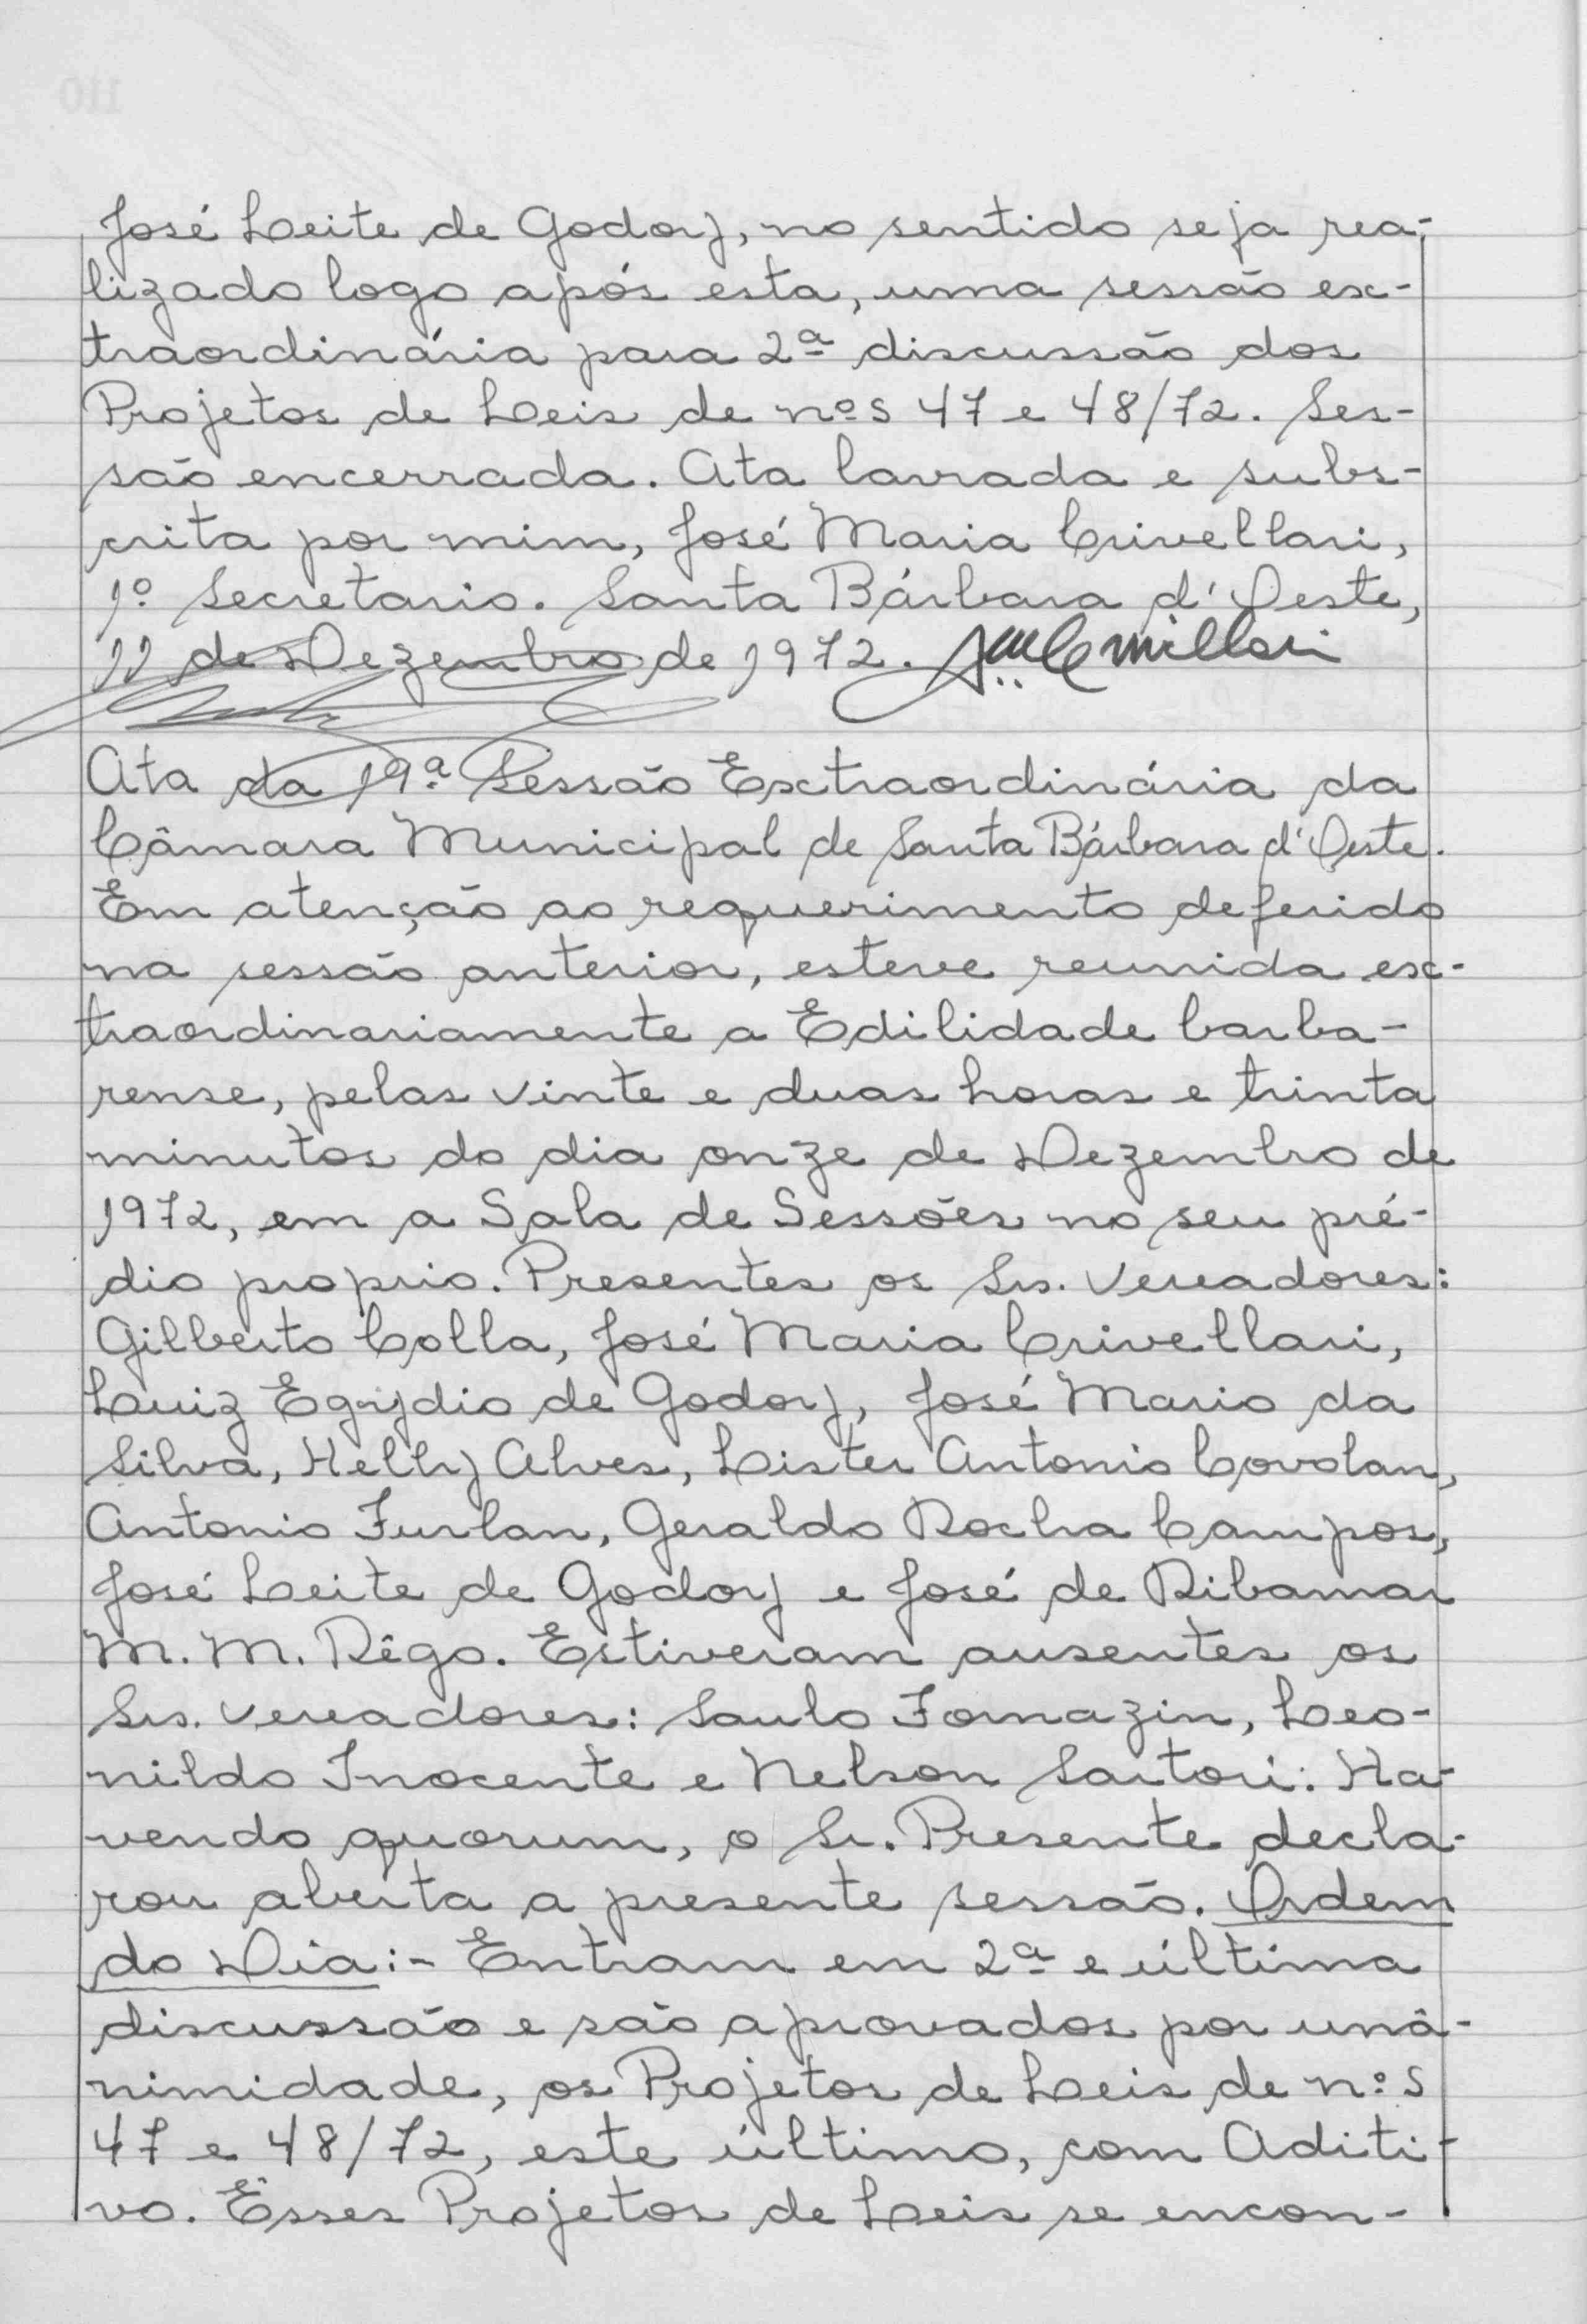 José Leite de Godoy, no sentido seja rea-
lizado logo após esta, uma sessão ex-
traordinária para 2ª discussão dos
Projetos de Leis de nºs 47 e 48/72. Ses-
são encerrada. Ata lavrada e subs-
crita por mim, José Maria Crivellari,
1º Secretario. Santa Bárbara d'Oeste,
11 de Dezembro de 1972.
Ata da 19ª Sessão Extraordinária da
Câmara Municipal de Santa Bárbara d'Oeste.
Em atenção ao requerimento deferido
na sessão anterior, esteve reunida ex-
traordinariamente a Edilidade barba-
rense, pelas vinte e duas horas e trinta
minutos do dia onze de Dezembro de
1972, em a Sala de Sessões no seu pré-
dio proprio. Presentes os Srs. Vereadores:
Gilberto Colla, José Maria Crivellari,
Luiz Egydio de Godoy, José Mario da
Silva, Helly Alves, Lister Antonio Covolan,
Antonio Furlan, Geraldo Rocha Campos,
José Leite de Godoy e José de Ribamar
M. M. Rêgo. Estiveram ausentes os
Srs. Vereadores: Saulo Fornazin, Leo-
nildo Inocente e Nelson Sartori. Ha-
vendo quorum, o Sr. Presente decla-
rou aberta a presente sessão. Ordem
do Dia:- Entram em 2ª e última
discussão e são aprovados por unâ-
nimidade, os Projetos de Leis de nºs
47 e 48/72, este último, com Aditi-
vo. Esses Projetos de Leis se encon-